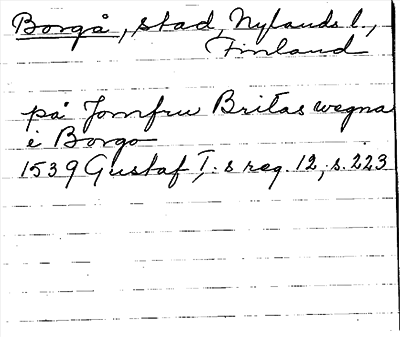 Borgå, stad, Nylands l.,
Finland
på Jomfru Britas wegna
i Borgo
1539 Gustaf I:s reg. 12, s. 223